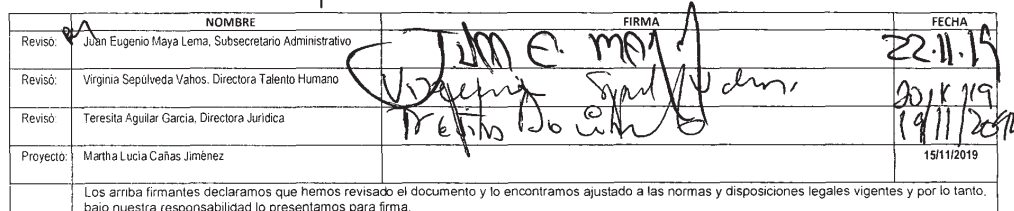 NOMBRE FIRMA FECHA
Revisó: Juan Eugenio Maya Lema, Subsecretario Administrativo JUAN E. MAYA 22.11.19
Revisó: Virginia Sepúlveda Vahos. Directora Talento Humano Virginia 20/X/19
Revisó: Teresita Aguilar García, Directora Jurídica 19/11/2019
Proyectó: Martha Lucía Cañas Jiménez 15/11/2019
Los arriba firmantes declaramos que hemos revisado el documento y lo encontramos ajustado a las normas y disposiciones legales vigentes y por lo tanto,
bajo nuestra responsabilidad lo presentamos para firma.